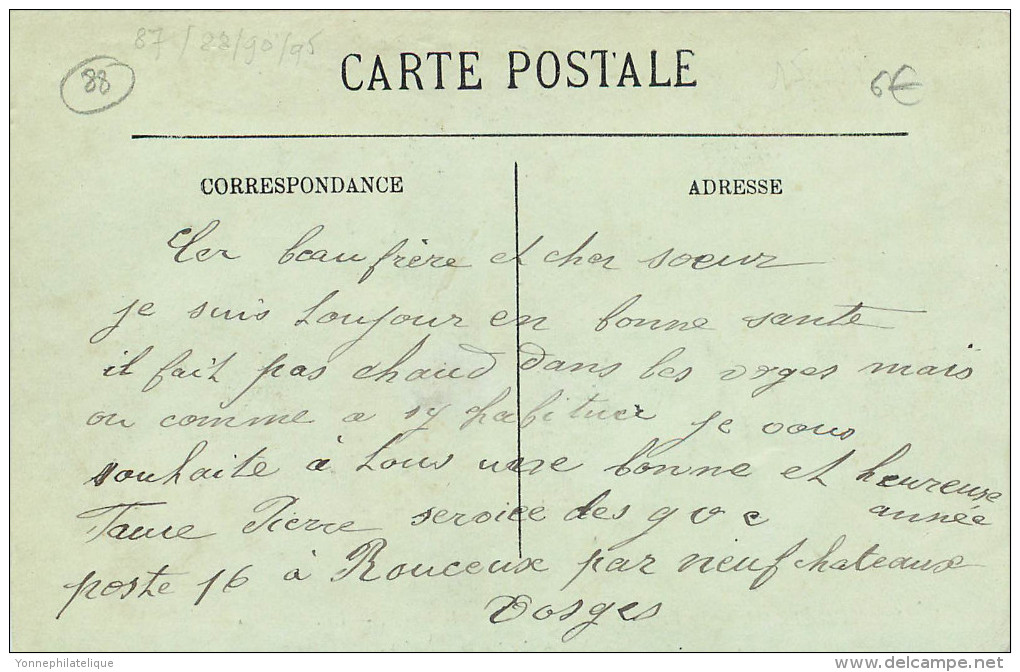 87/22/90/95
88
CARTE POSTALE
6€
CORRESPONDANCE
ADRESSE
Cer beau frère et cher soeur
je suis toujour en bonne sante
il fait pas chaud dans les voges mais
on comme a sy habituer je vous
souhaite à tous une bonne et heureuse
année
Faure Pierre service des gvc
poste 16 à Rouceux par neufchateaux
Vosges
Yonnephilatelique
delcampe.net